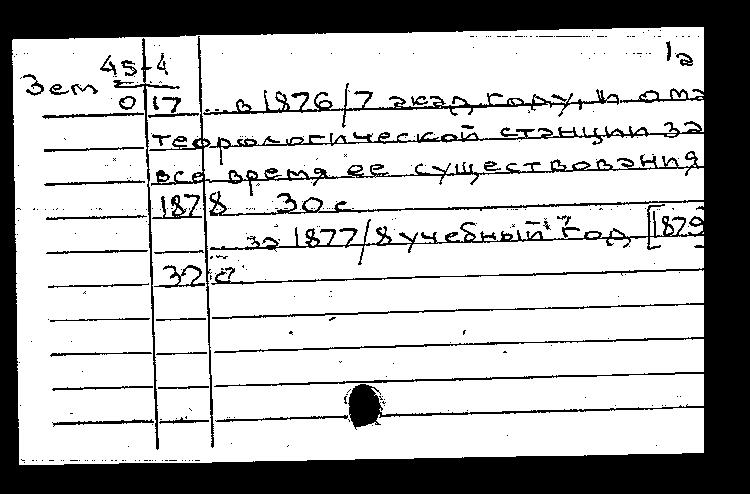 1а
45-4
Зем
0 17 ... в 1876/7 акад. году, и о ме
теорологической станции за
все время ее существования
1878 30 с
... за 1877/8 учебный год. [1879
32 с.